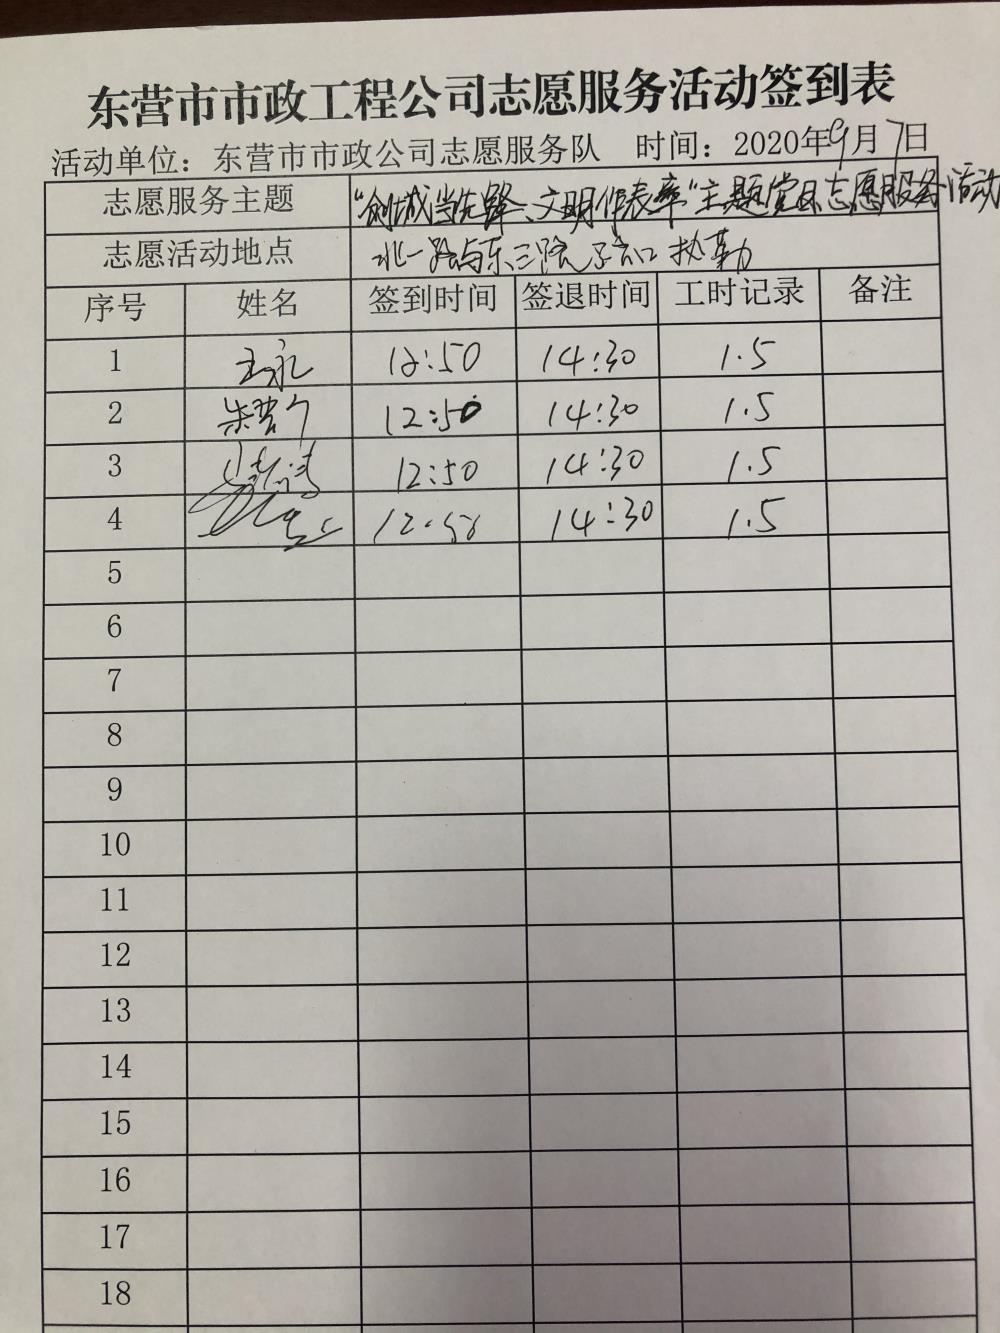 东营市市政工程公司志愿服务活动签到表
活动单位：东营市市政公司志愿服务队 时间：2020年9月7日
志愿服务主题 “创城当先锋、文明作表率”主题党日志愿服务活动
志愿活动地点 北一路与东三路路口执勤
序号 姓名 签到时间 签退时间 工时记录 备注
1 王永 12:50 14:30 1.5
2 朱 12:50 14:30 1.5
3 12:50 14:30 1.5
4 12:50 14:30 1.5
5
6
7
8
9
10
11
12
13
14
15
16
17
18